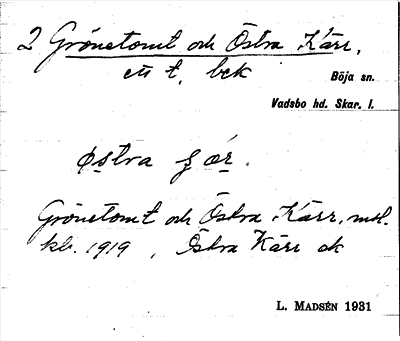 2 Grönetomt och Östra Kärr,
ett t. bck
Böja sn.
Vadsbo hd. Skar. l.
östra
Grönetomt och Östra Kärr, mtl.
kb. 1919, Östra Kärr ek
L. MADSÉN 1931